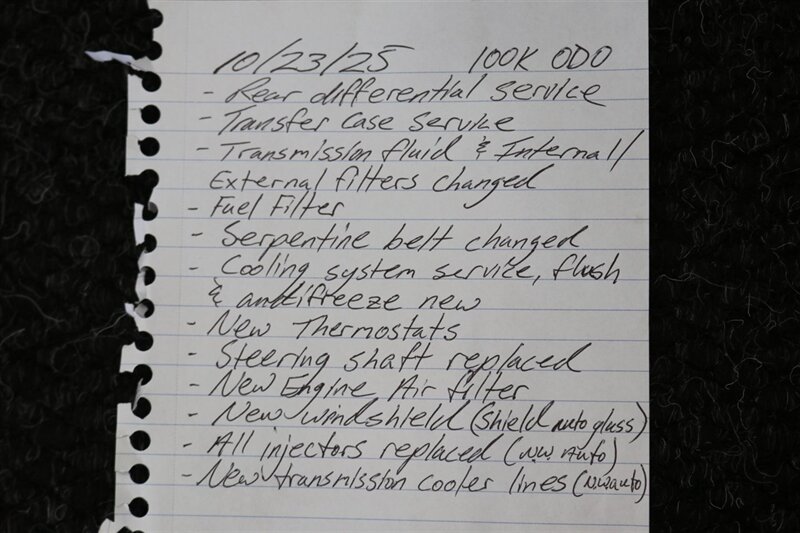 10/23/25 100K ODO
- Rear differential service
- Transfer Case Service
- Transmission fluid & Internal/
External filters changed
- Fuel Filter
- Serpentine belt changed
- Cooling system service, flush
& antifreeze new
- New Thermostats
- Steering shaft replaced
- New Engine Air filter
- New windshield (Shield auto glass)
- All injectors replaced (N.W. Auto)
- New transmission cooler lines (N.W. auto)